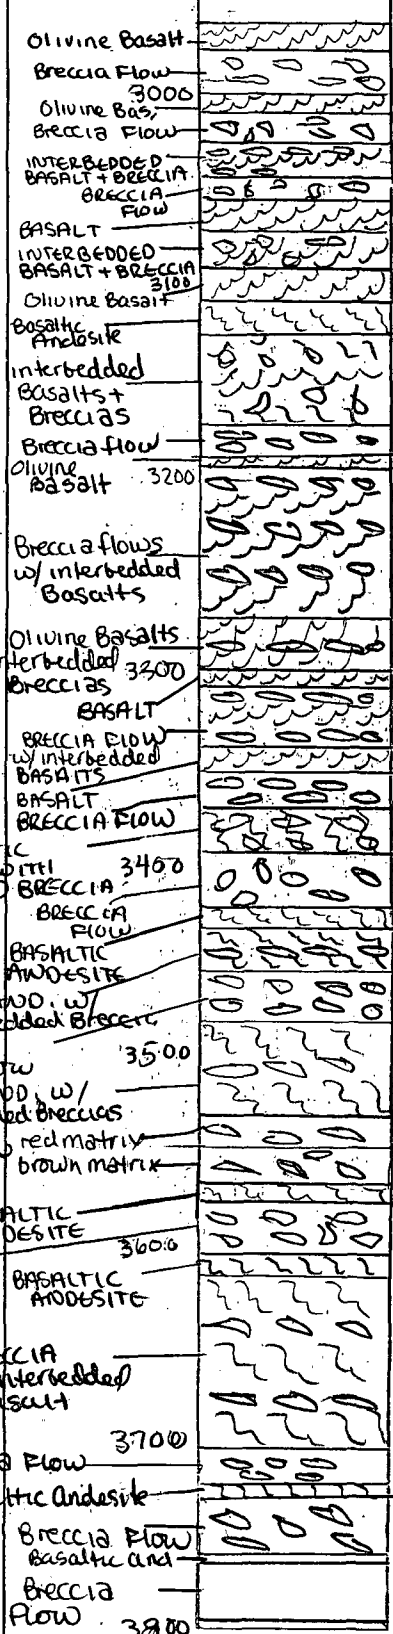 Olivine Basalt
Breccia Flow
3000
Olivine Bas,
Breccia Flow
INTERBEDDED
BASALT + BRECCIA
BRECCIA
FLOW
BASALT
INTERBEDDED
BASALT + BRECCIA
3100
Olivine Basalt
Basaltic
Andesite
interbedded
Basalts +
Breccias
Breccia flow
Olivine
Basalt
3200
Breccia flows
w/ interbedded
Basalts
Olivine Basalts
nterbedded
3300
Breccias
BASALT
BRECCIA FLOW
w/ interbedded
BASALTS
BASALT
BRECCIA FLOW
IC
WITH
3400
BRECCIA
BRECCIA
FLOW
BASALTIC
ANDESITE
AND. W/
edded Breccia
3500
OW
ND. W/
ed Breccias
red matrix
brown matrix
ALTIC
DESITE
3600
BASALTIC
ANDESITE
CCIA
nterbedded
asalt
3700
a Flow
ltic Andesite
Breccia Flow
Basaltic And
Breccia
Flow
3800